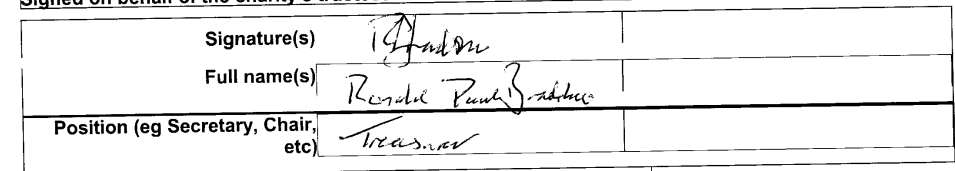 Signed on behalf of the charity's trustees
Signature(s)
Full name(s) Ronald Paul
Position (eg Secretary, Chair,
etc) Treasurer